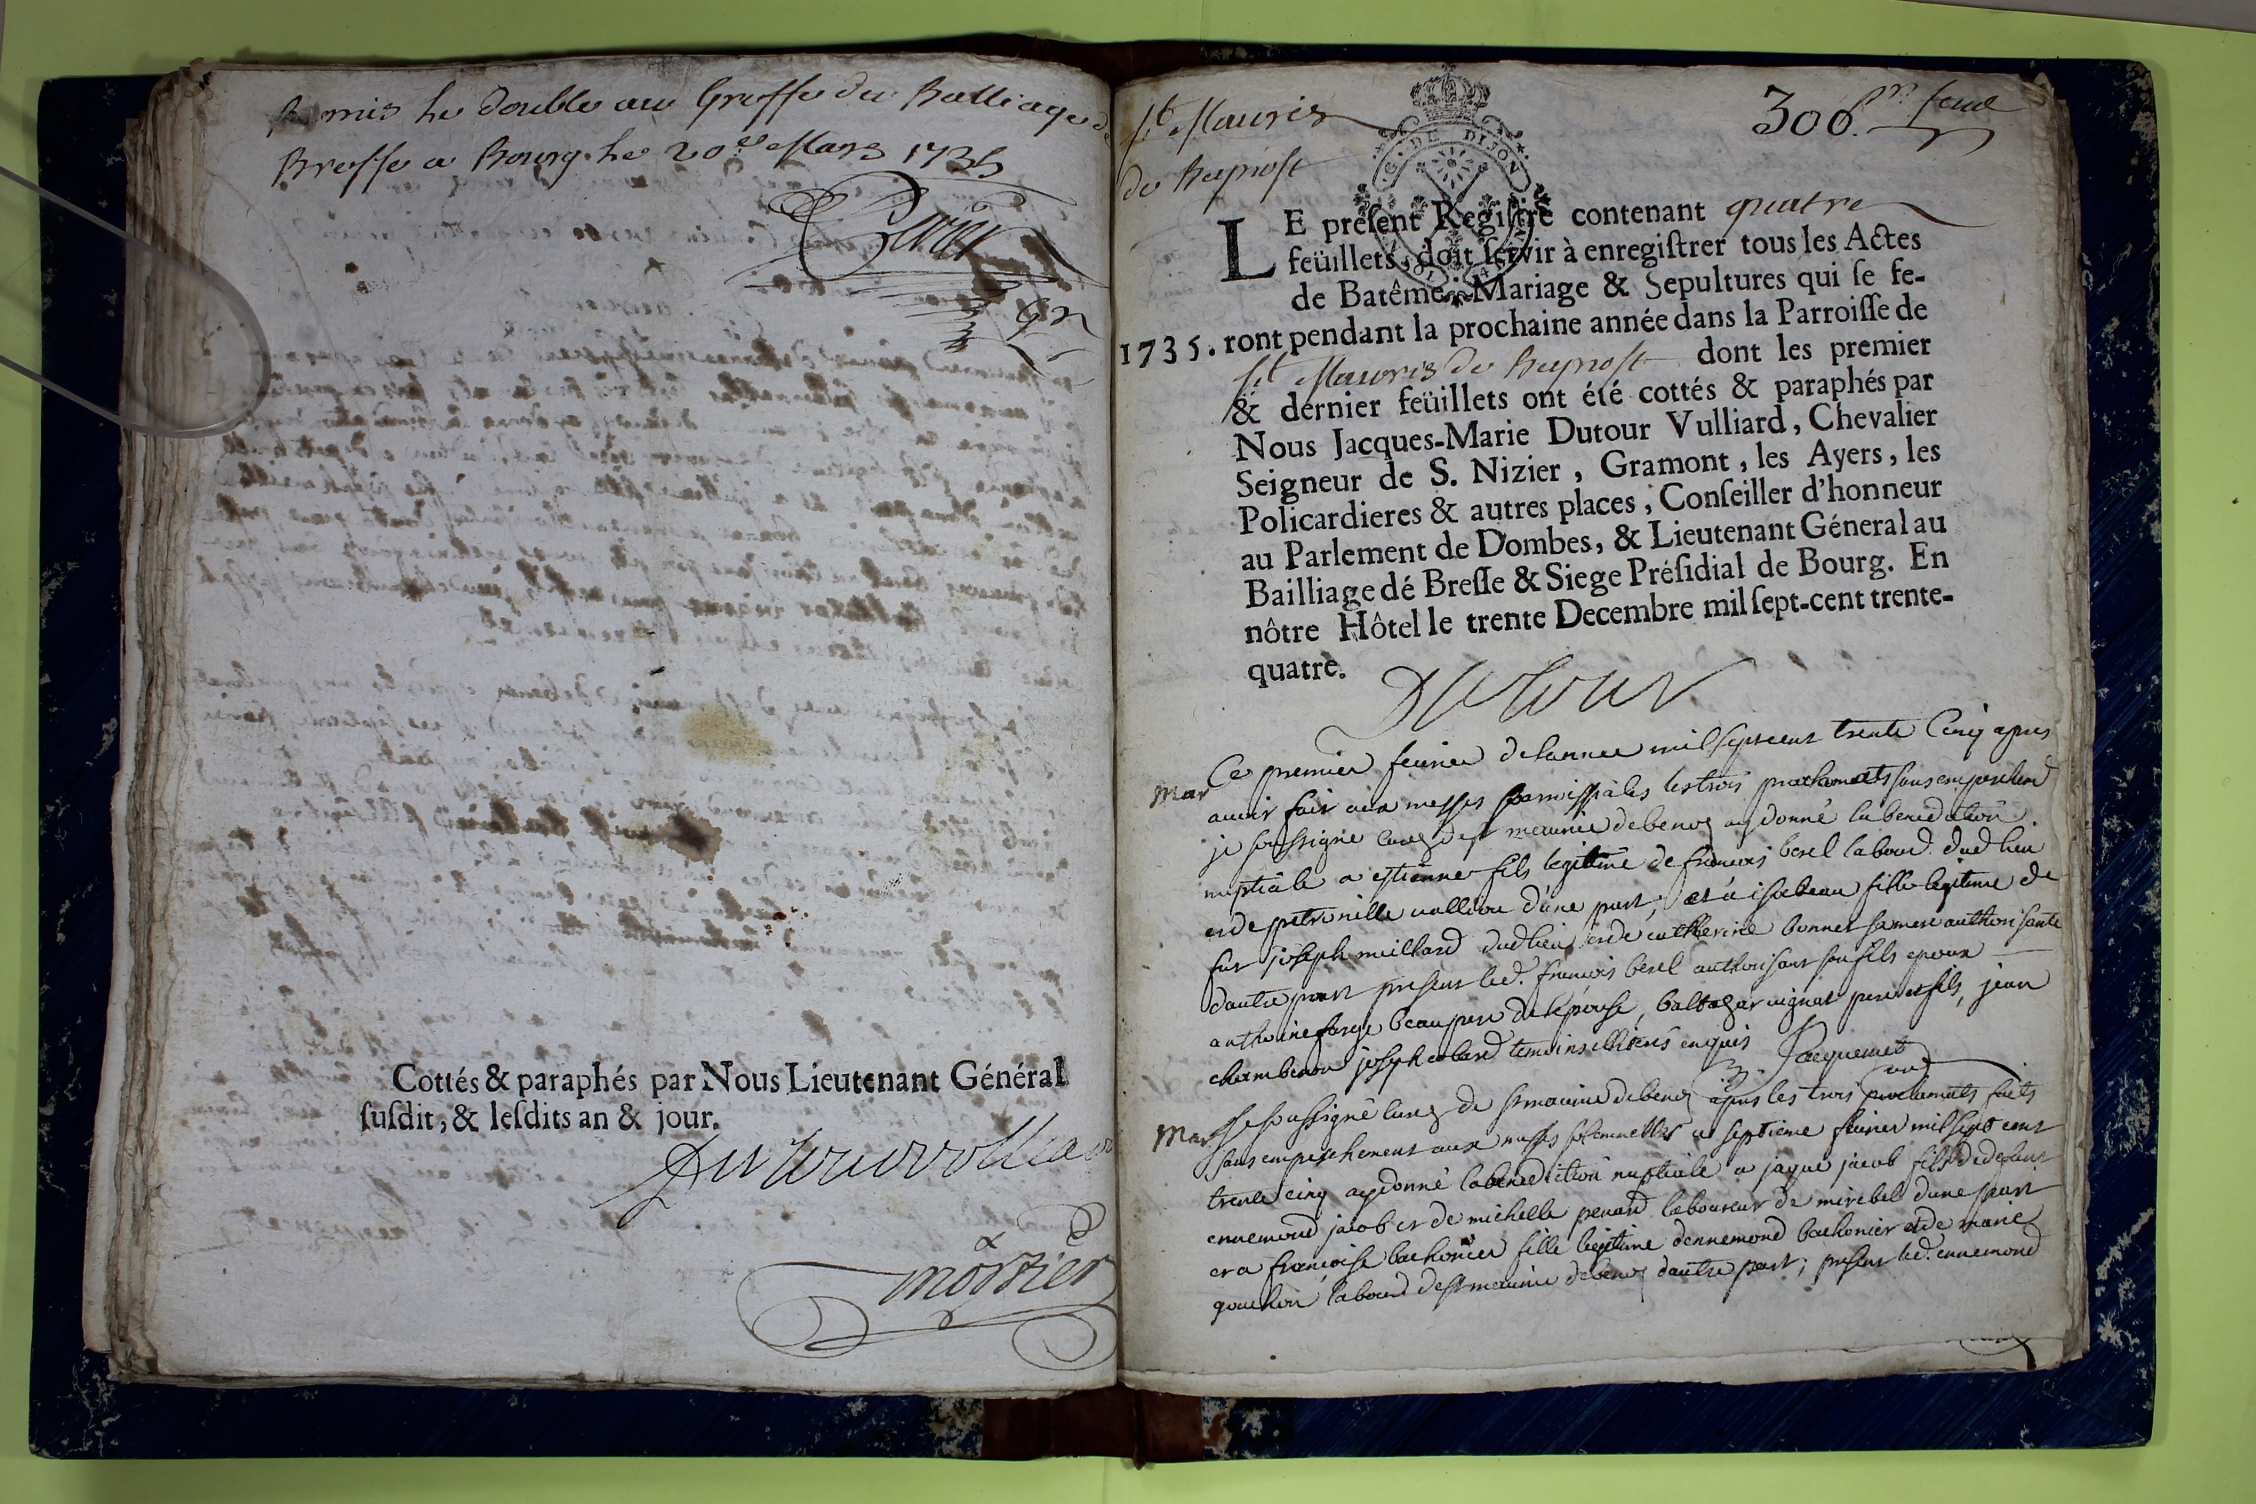 Remis le double au Greffe du Balliage de
Bresse a Bourg le 20e Mars 1735
Cottés & paraphés par Nous Lieutenant Général
susdit, & lesdits an & jour.
Mortier
St Mauris
de Beynost
G. DE DIJON
306. pr feuil
LE present Registre contenant quatre
feüillets, doit servir à enregistrer tous les Actes
de Batême, Mariage & Sepultures qui se fe-
1735. ront pendant la prochaine année dans la Parroisse de
St Mauris de Beynost dont les premier
& dernier feüillets ont été cottés & paraphés par
Nous Jacques-Marie Dutour Vulliard, Chevalier
Seigneur de S. Nizier, Gramont, les Ayers, les
Policardieres & autres places, Conseiller d'honneur
au Parlement de Dombes, & Lieutenant Géneral au
Bailliage dé Bresse & Siege Présidial de Bourg. En
nôtre Hôtel le trente Decembre mil sept-cent trente-
quatre.
Dutour
Mar Ce premier feurier de lannee mil sept cent trente Cinq apres
auoir fait aux messes parroissiales les trois proclamats sans empeschend
je soussigné curé de st maurice de benoz ay donné la benediction
nuptiale a estienne fils legitime de francois besel labourd dud lieu
et de petronille uallion d'une part, et a isabeau fille legitime de
fut joseph meillard dud lieu et de catherine bonnet sa mere authorisante
dautre part present led. francois besel authorisant son fils epoux
anthoine farge beaupere de lepouse, baltazar uignat pere et fils, jean
chamberon joseph temoins illiterés enquis Jacquemet
Mar Je soussigné curé de st maurice de benoz apres les trois proclamats faits
sans empeschement aux messes solemnelles ce septieme feurier mil sept cent
trente cinq ay donné la benediction nuptiale a jaque jacob fils de defunt
ennemond jacob et de michelle penard laboureur de mirebel dune part
et a francoise bachonier fille legitime dennemond bachonier et de marie
gouchon labourd de st maurice de benoz dautre part; present led. ennemond